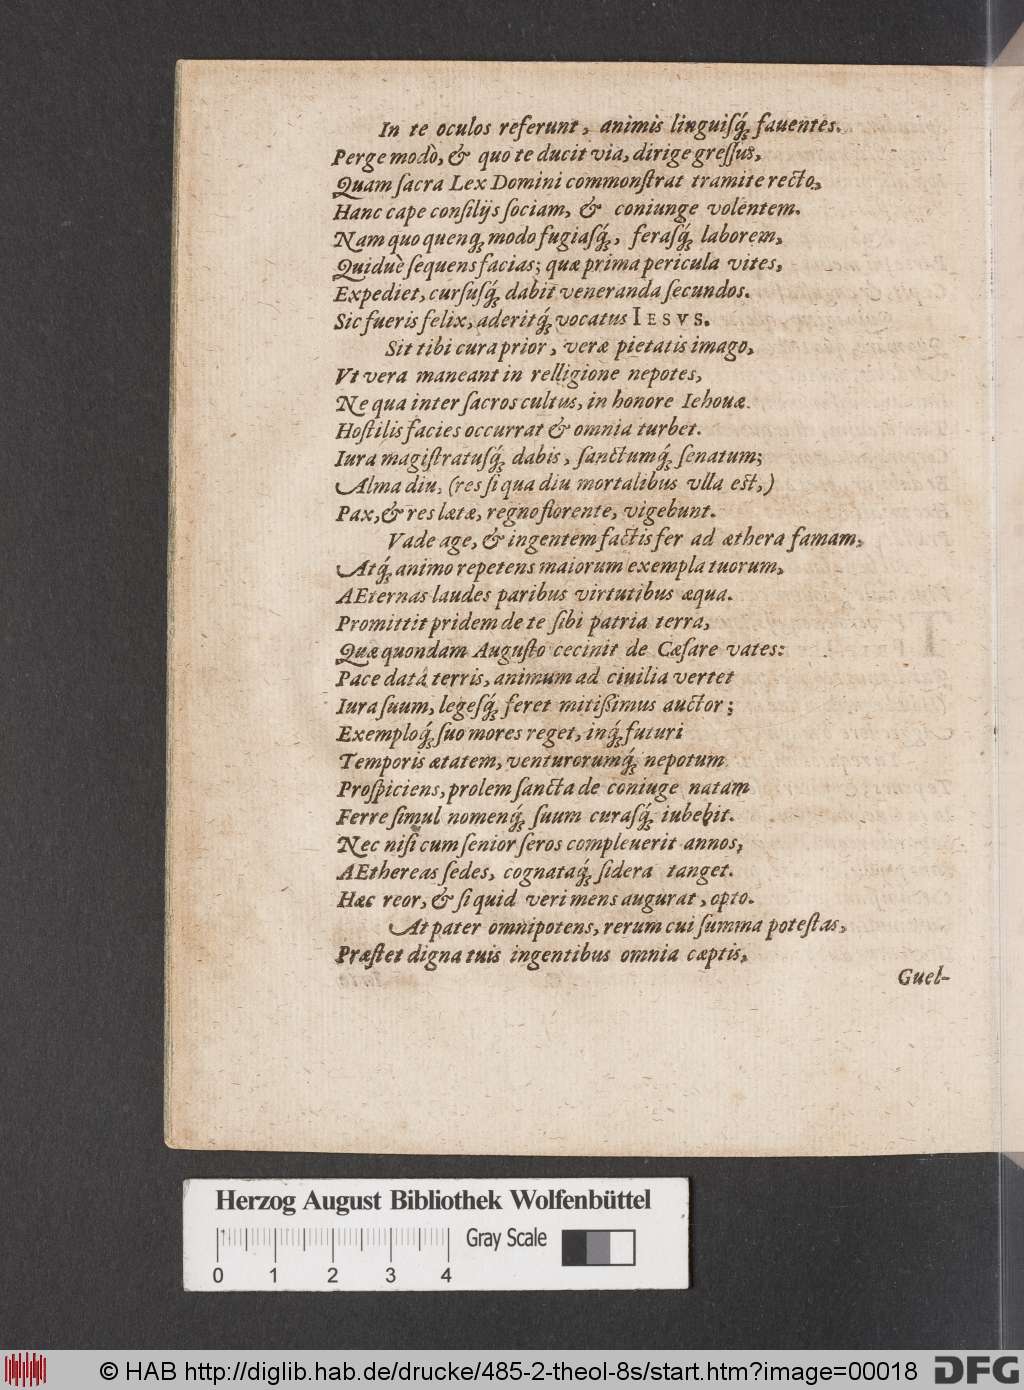 In te oculos referunt, animis linguiſq́; fauentes.
Perge modò, & quo te ducit via, dirige greſſus,
Quam ſacra Lex Domini commonſtrat tramite recto,
Hanc cape conſilijs ſociam, & coniunge volentem.
Nam quo quenq; modo fugiaſq́;, feraſq́; laborem,
Quiduè ſequens facias; quæ prima pericula vites,
Expediet, curſuſq́; dabit veneranda ſecundos.
Sic fueris felix, aderitq́; vocatus IESVS.
Sit tibi cura prior, veræ pietatis imago,
Vt vera maneant in relligione nepotes,
Ne qua inter ſacros cultus, in honore Iehouæ
Hoſtilis facies occurrat & omnia turbet.
Iura magiſtratuſq́; dabis, ſanctumq́; ſenatum;
Alma diu, (res ſi qua diu mortalibus vlla eſt,)
Pax, & res lætæ, regno florente, vigebunt.
Vade age, & ingentem factis fer ad æthera famam,
Atq́; animo repetens maiorum exempla tuorum,
AEternas laudes paribus virtutibus æqua.
Promittit pridem de te ſibi patria terra,
Quæ quondam Auguſto cecinit de Cæſare vates:
Pace datâ terris, animum ad ciuilia vertet
Iura ſuum, legeſq́; feret mitißimus auctor;
Exemploq́; ſuo mores reget, inq́; futuri
Temporis ætatem, venturorumq́; nepotum
Proſpiciens, prolem ſancta de coniuge natam
Ferre ſimul nomenq́; ſuum curaſq́; iubebit.
Nec niſi cum ſenior ſeros compleuerit annos,
AEthereas ſedes, cognataq́; ſidera tanget.
Hæc reor, & ſi quid veri mens augurat, opto.
At pater omnipotens, rerum cui ſumma poteſtas,
Præſtet digna tuis ingentibus omnia cæptis,
Guel-
Herzog August Bibliothek Wolfenbüttel
Gray Scale
0 1 2 3 4
© HAB http://diglib.hab.de/drucke/485-2-theol-8s/start.htm?image=00018
DFG